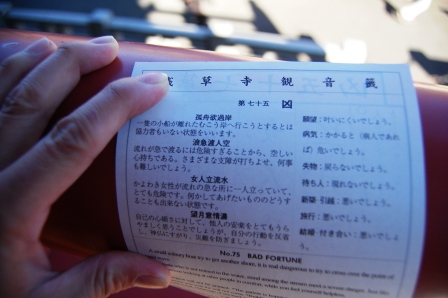 草寺観音籤
第七十五 凶
孤舟欲過岸
一隻の小船が離れたむこう岸へ行こうとするとは
協力者もいない状態をいいます。
浪急渡人空
流れが急で渡るには危険すぎることから、空しい
心持ちである。さまざまな支障が打ちよせ、何事
も難しいでしょう。
女人立流水
かよわき女性が流れの急な所に一人立っていて、
とても危険です。何かしてあげたいもののどうす
ることも出来ない状態です。
望月意情濃
自己の心細さに対して、他人の安楽をとてもうら
やましく思うことでしょうが、自分の行動を反省
し、神仏にすがり、災難を防ぎましょう。
願望：叶いにくいでしょう。
病気：かかると（病人であれ
ば）危いでしょう。
失物：戻らないでしょう。
待ち人：現れないでしょう。
新築・引越：悪いでしょう。
旅行：悪いでしょう。
結婚・付き合い：悪いでしょ
う。
No.75 BAD FORTUNE
A small solitary boat try to get another shore, it is real dangerous to try to cross over the point of